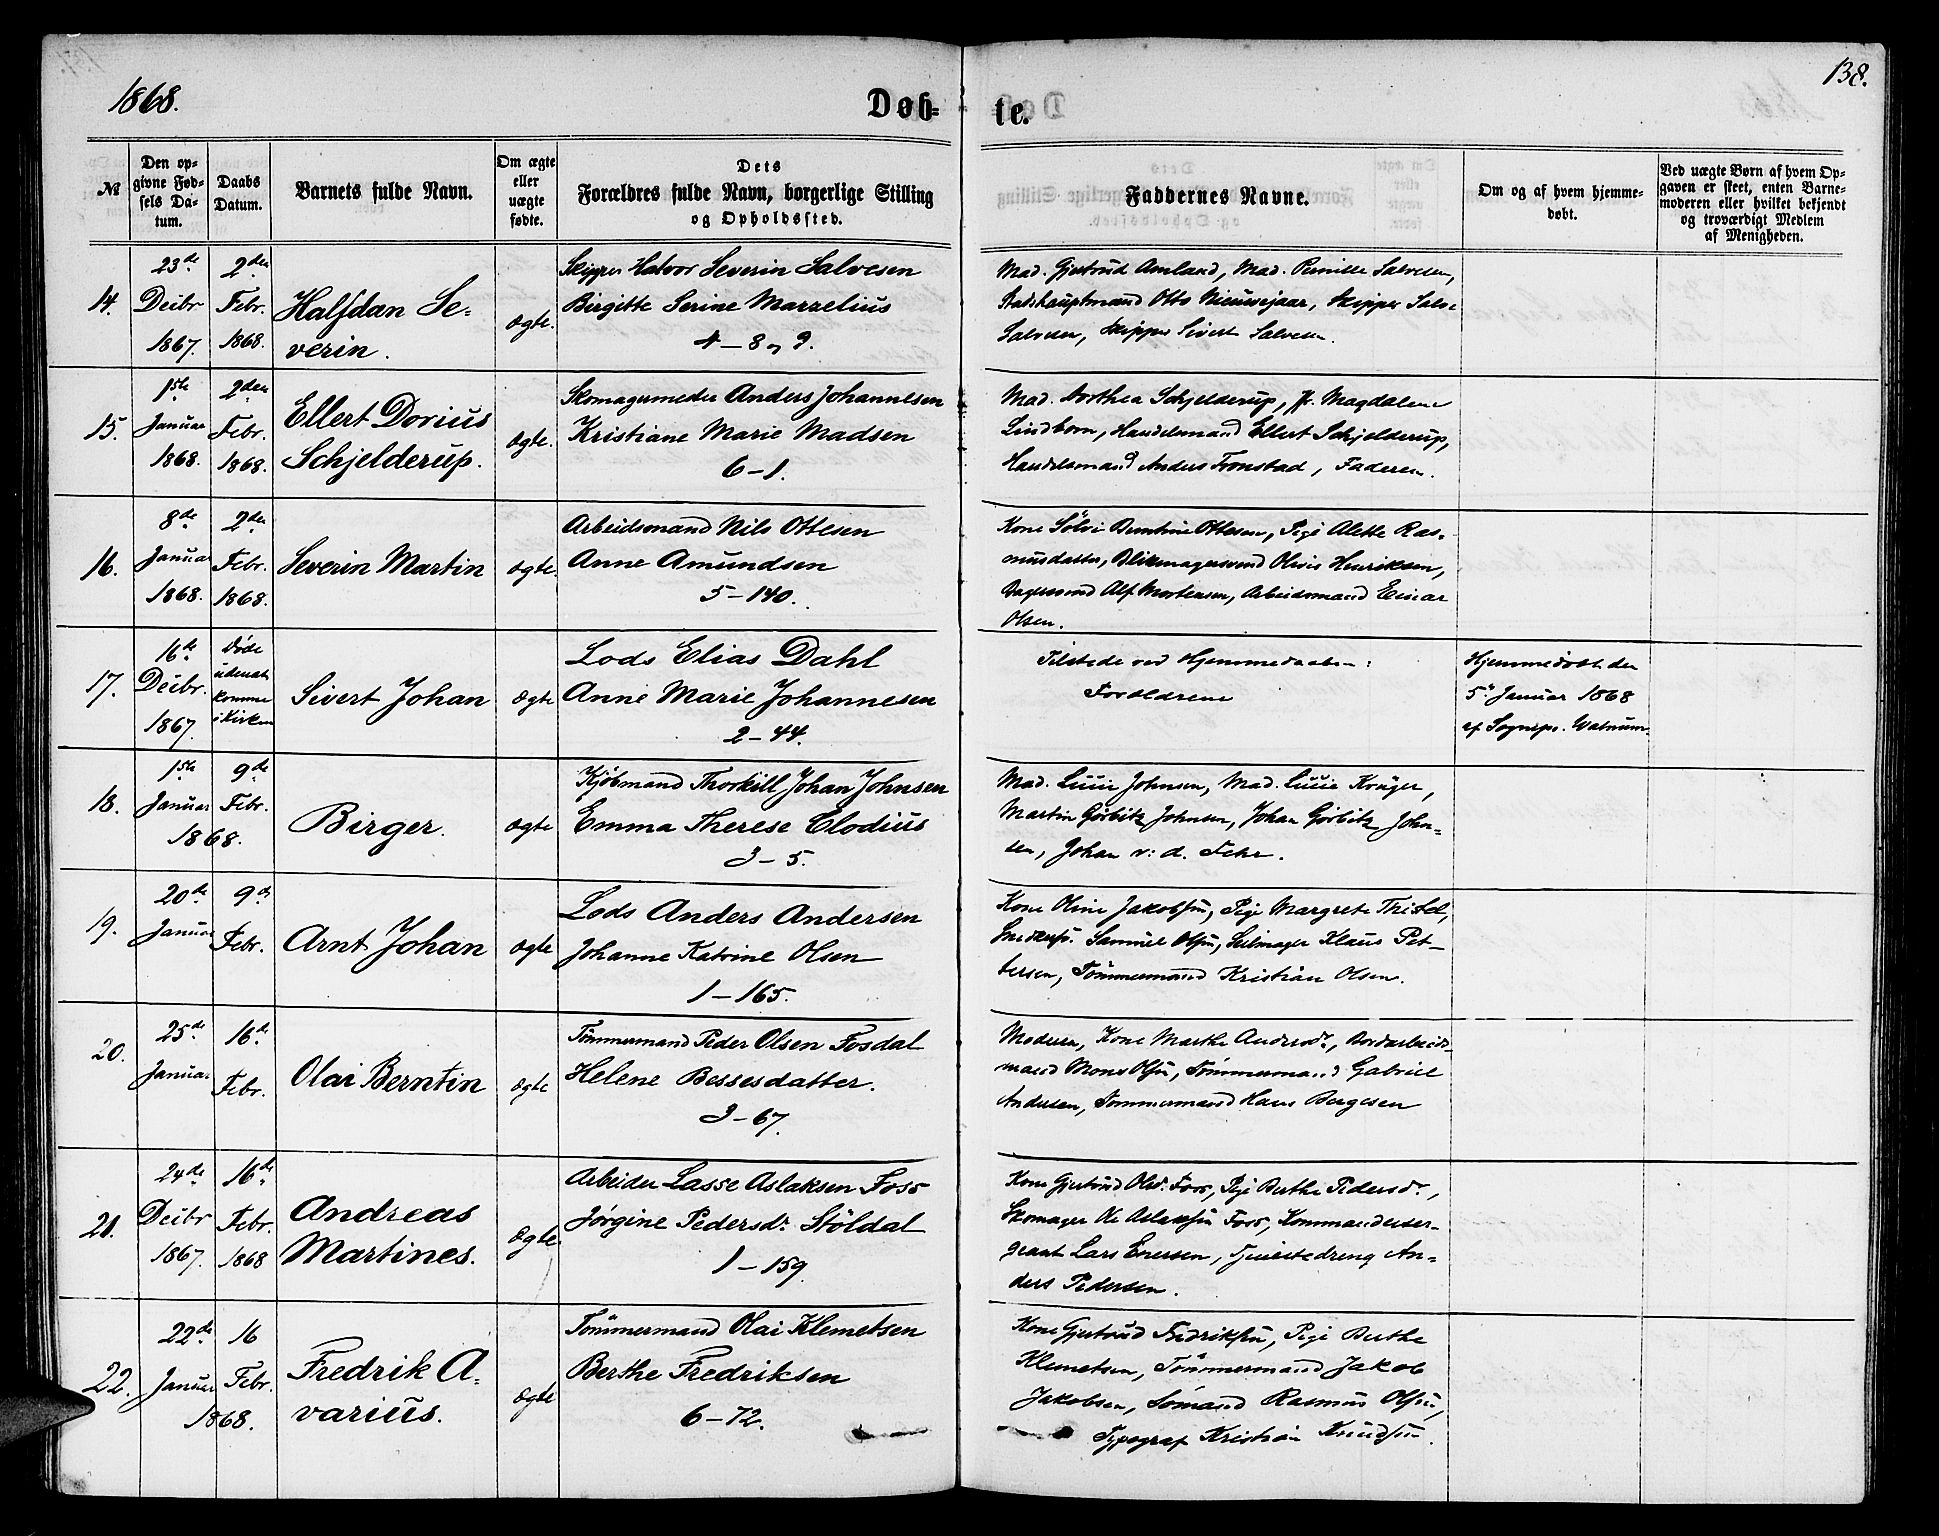 1868.
Døb-
te.
138.
№
Den op-
givne Fød-
sels Da-
tum.
Daabs
Datum.
Barnets fulde Navn.
Om ægte
eller
uægte
fødte.
Dets
Forældres fulde Navn, borgerlige Stilling
og Opholdssted.
Faddernes Navne.
Om og af hvem hjemme-
døbt.
Ved uægte Børn af hvem Op-
gaven er skeet, enten Barne-
moderen eller hvilket bekjendt
og troværdigt Medlem
af Menigheden.
14.
23de
Decbr
1867.
2den
Febr.
1868.
Halfdan Se-
verin.
ægte.
Skipper Halvor Severin Salvesen
Birgitte Serine Marzelius
4 – 8 og 9.
Mad. Gjertrud Amland, Mad. Pernille Salvesen,
Stadshauptmand Otto Nieuwejaar, Skipper Salve
Salvesen, Skipper Sivert Salvesen.
15.
1ste
Januar
1868.
2den
Febr.
1868.
Ellert Dorius
Schjelderup.
ægte.
Skomagermester Anders Johannesen
Kristiane Marie Madsen
6 – 1.
Mad. Dorthea Schjelderup, Fr. Magdalene
Lindborn, Handelsmand Ellert Schjelderup,
Handelsmand Anders Tronstad, Faderen.
16.
8de
Januar
1868.
2den
Febr.
1868.
Severin Martin
ægte.
Arbeidsmand Nils Ottesen
Anne Amundsen
5 – 140.
Kone Sølvi Berntine Ottesen, Pige Alette Ras-
musdatter, Blikmagersvend Olves Henriksen,
Bagersvend Alf Mortensen, Arbeidsmand Einar
Olsen.
17.
16de
Decbr.
1867.
Døde
udenat
komme
i Kirken
Sivert Johan
ægte
Lods Elias Dahl
Anne Marie Johannesen
2 – 44.
Tilstede ved Hjemmedaaben:
Forældrene
Hjemmedøbt den
5te Januar 1868
af Sognepr. Walnum.
18.
1ste
Januar
1868.
9de
Febr.
Birger.
ægte
Kjøbmand Thorkill Johan Johnsen
Emma Therese Clodius
3 – 5.
Mad. Lucie Johnsen, Mad. Lucie Krüger,
Martin Görbitz Johnsen, Johan Görbitz John-
sen, Johan v: d. Fehr.
19.
20de
Januar
9de
Febr.
Arnt Johan
ægte
Lods Anders Andersen
Johanne Katrine Olsen
1 – 165.
Kone Oline Jakobsen, Pige Margrete Thistel,
Samuel Olsen, Seilmager Klaus Pet-
tersen, Tømmermand Kristian Olsen.
20.
25de
Januar
16de
Febr.
Olai Berntin
ægte
Tømmermand Peder Olsen Fosdal
Helene Bessesdatter.
3 – 67.
Moderen, Kone Marthe Andersdr., Bordarbeids-
mand Mons Olsen, Tømmermand Gabriel
Andersen, Tømmermand Hans Bergesen
21.
24de
Decbr
1867.
16de
Febr.
1868
Andreas
Martines.
ægte.
Arbeider Lasse Aslaksen Foss
Jørgine Pedersdr. Stöldal
1 – 159.
Kone Gjertrud Olsdr. Foss, Pige Berthe Pedersdr.,
Skomager Ole Aslaksen Foss, Kommandeerser-
geant Lars Enersen, Tjenestedreng An-
ders Pedersen.
22.
22de
Januar
1868.
16
Febr.
Fredrik A-
varius.
ægte
Tømmermand Olai Klemetsen
Berthe Fredriksen
6 – 72.
Kone Gjertrud Fredriksen, Pige Berthe
Klemetsen, Tømmermand Jakob
Jakobsen, Sømand Rasmus Olsen,
Typograf Kristian Knudsen.